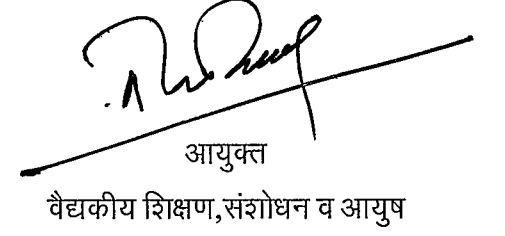 आयुक्त
वैद्यकीय शिक्षण,संशोधन व आयुष